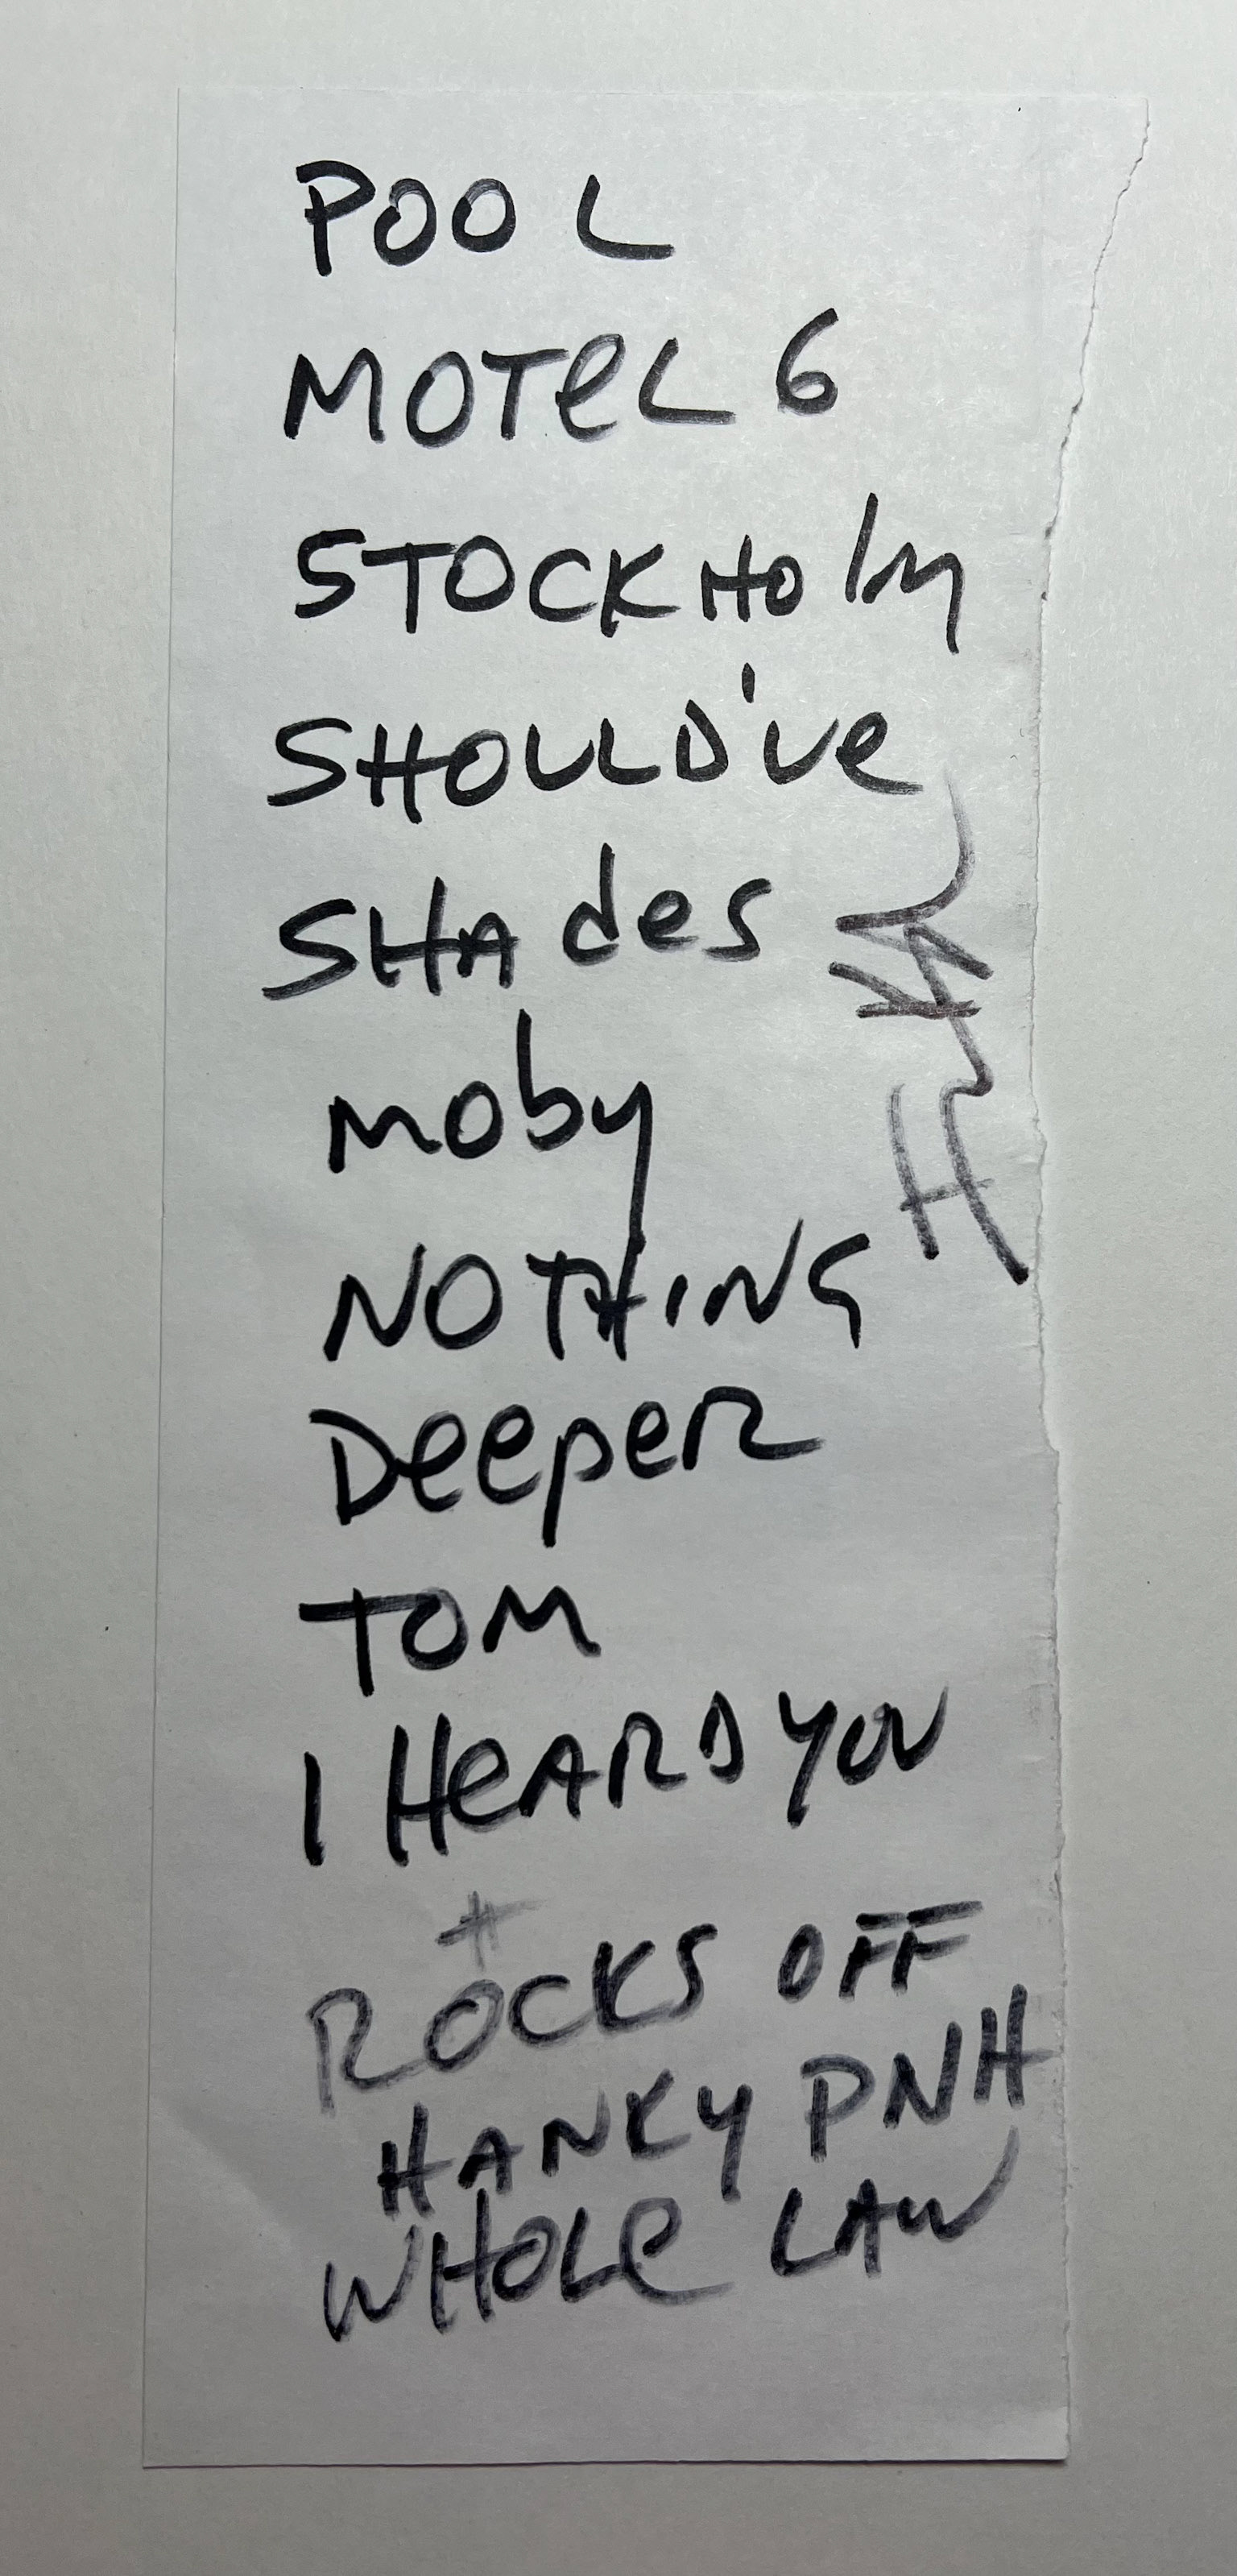 POOL
MOTEL 6
STOCKHOLM
SHOULD'VE
SHADES
MOBY
NOTHING
DEEPER
TOM
I HEARD YOU
+
ROCKS OFF
HANKY PNH
WHOLE LAW